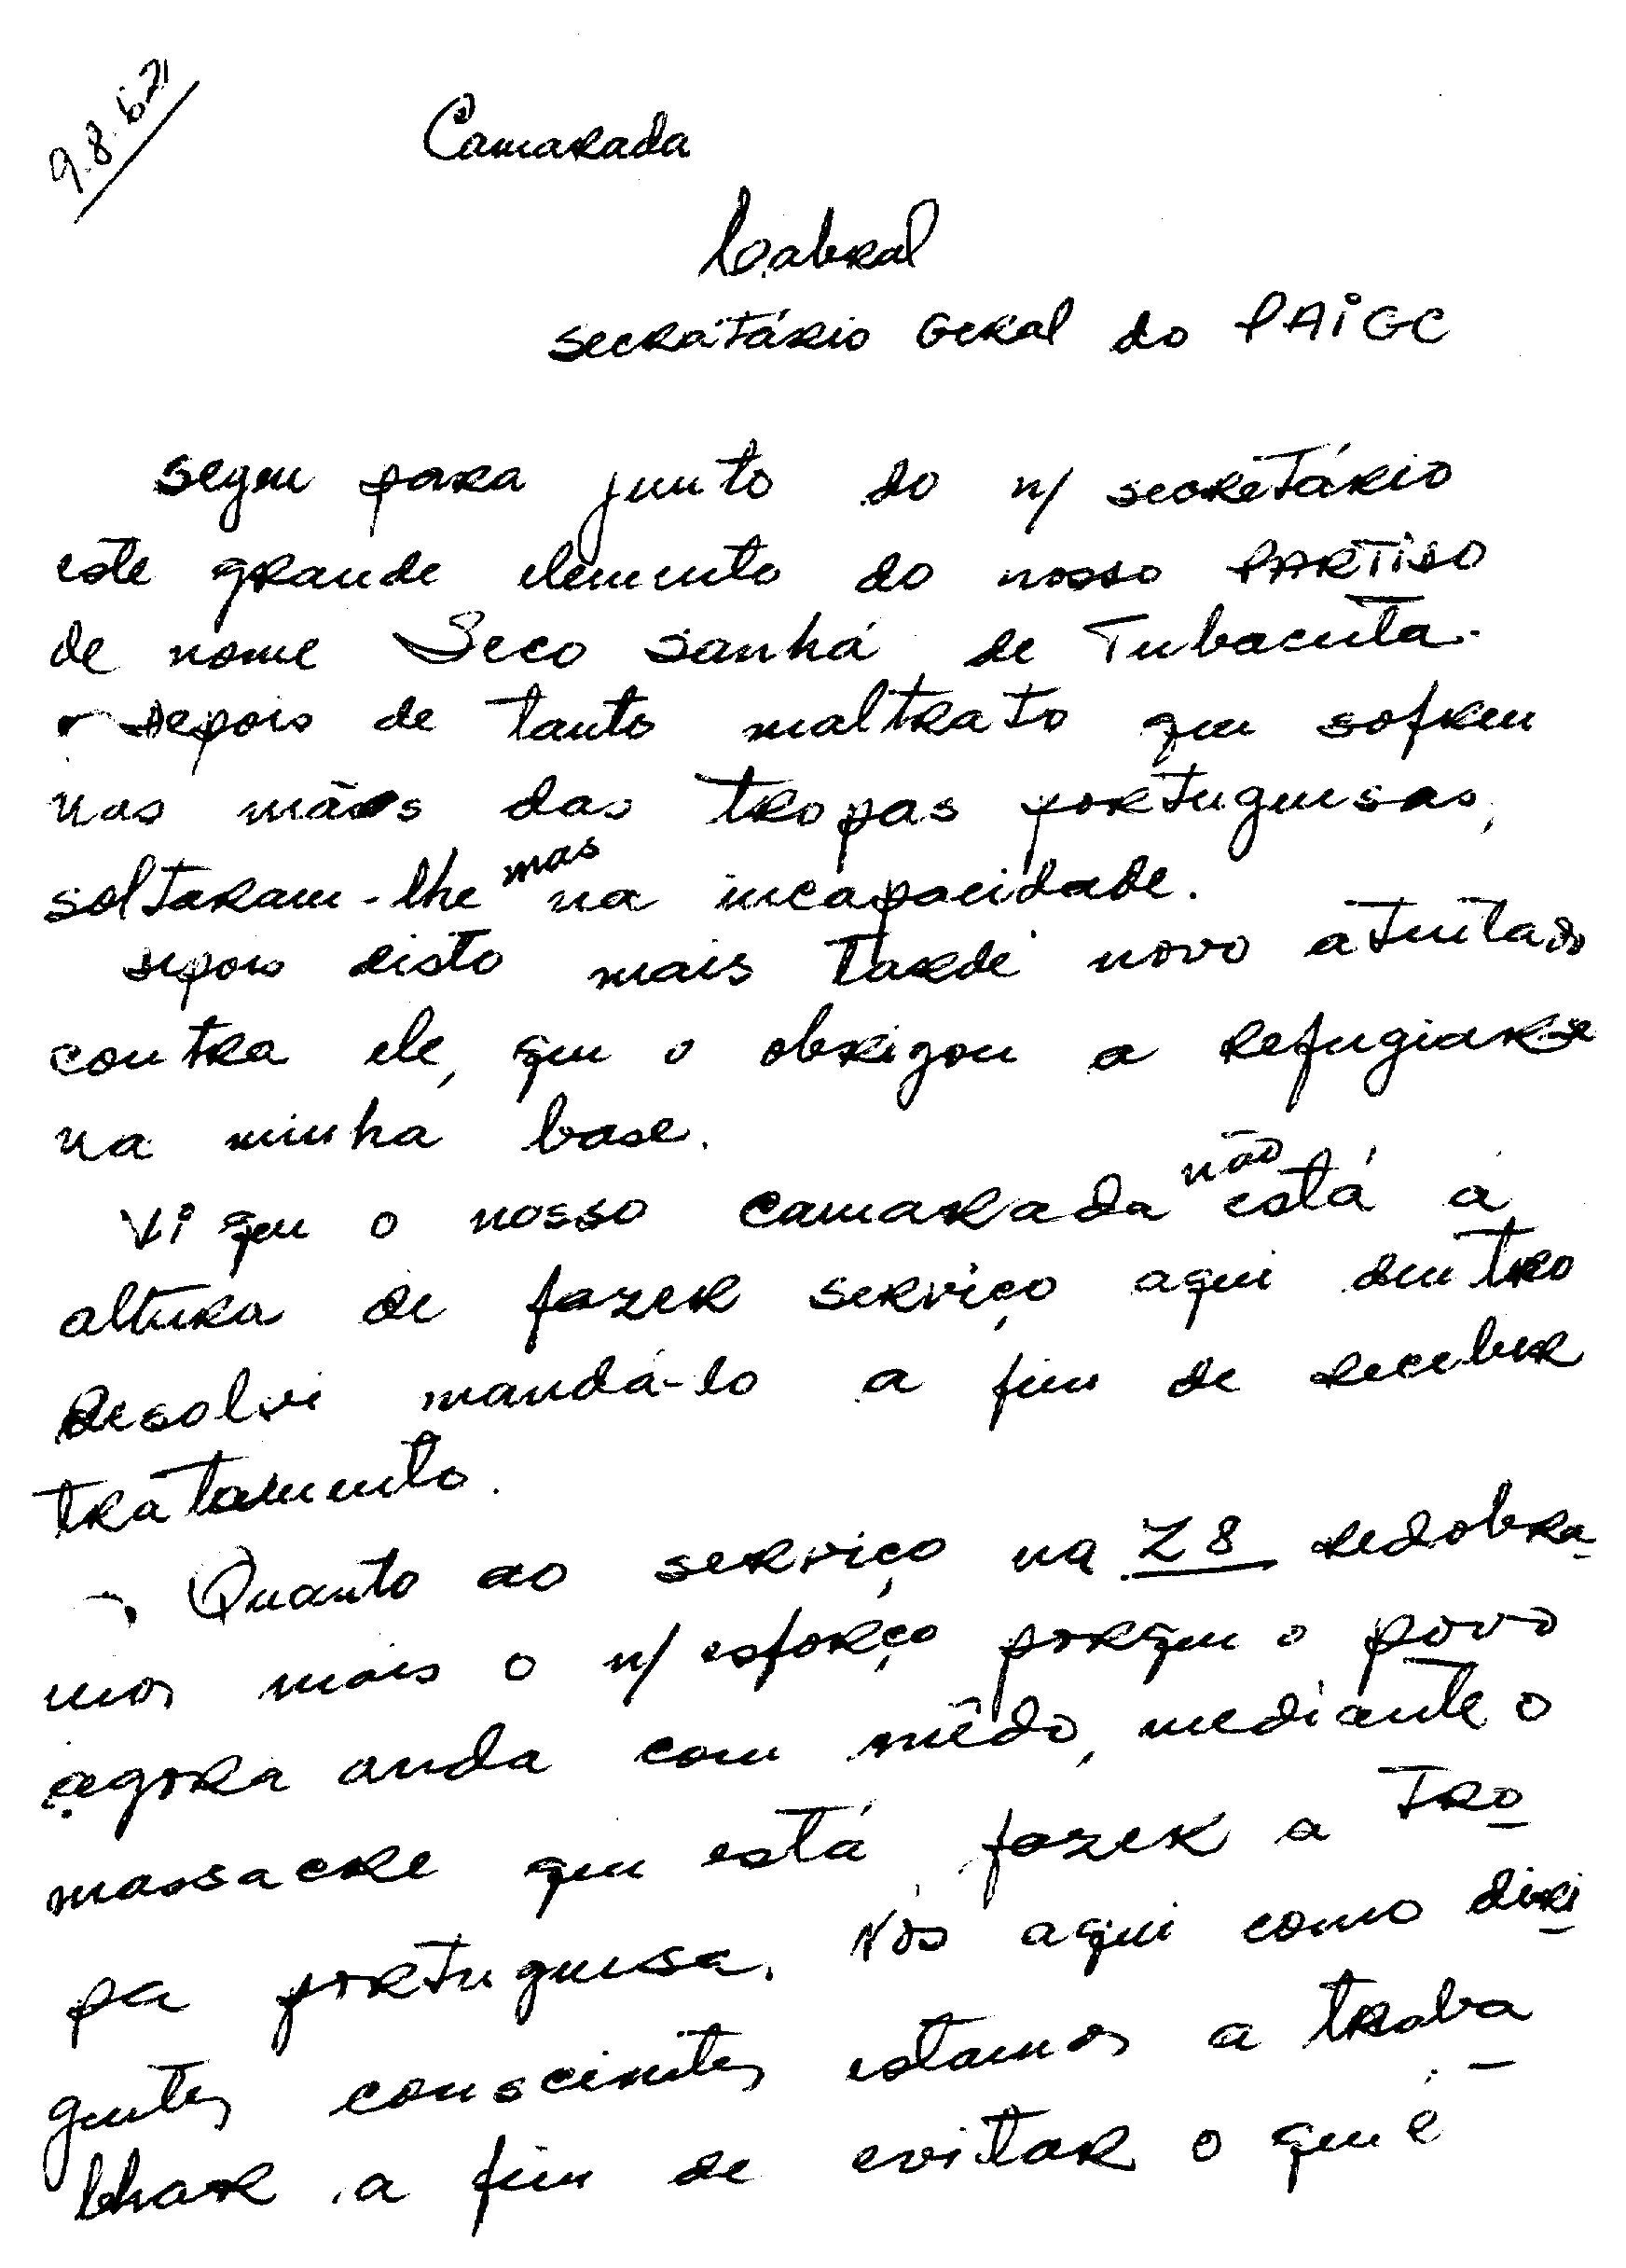 9.8.62
Camarada
Cabral
Secretário Geral do PAIGC
Segue para junto do n/ secretário
este grande elemento do nosso PARTIDO
de nome Seco Sanhá de Tubacuta.
Depois de tanto maltrato que sofreu
nas mãos das tropas portuguesas,
soltaram-lhe mas na incapacidade.
Depois disto mais tarde novo atentado
contra ele, que o obrigou a refugiar-se
na minha base.
Vi que o nosso camarada não está à
altura de fazer serviço aqui dentro
Resolvi mandá-lo a fim de receber
tratamento.
Quanto ao serviço na Z 8 redobra-
mos mais o n/ esforço porque o povo
agora anda com mêdo, mediante o
massacre que está fazer a tro-
pa portuguesa. Nós aqui como diri-
gentes conscientes estamos a traba-
lhar a fim de evitar o que é